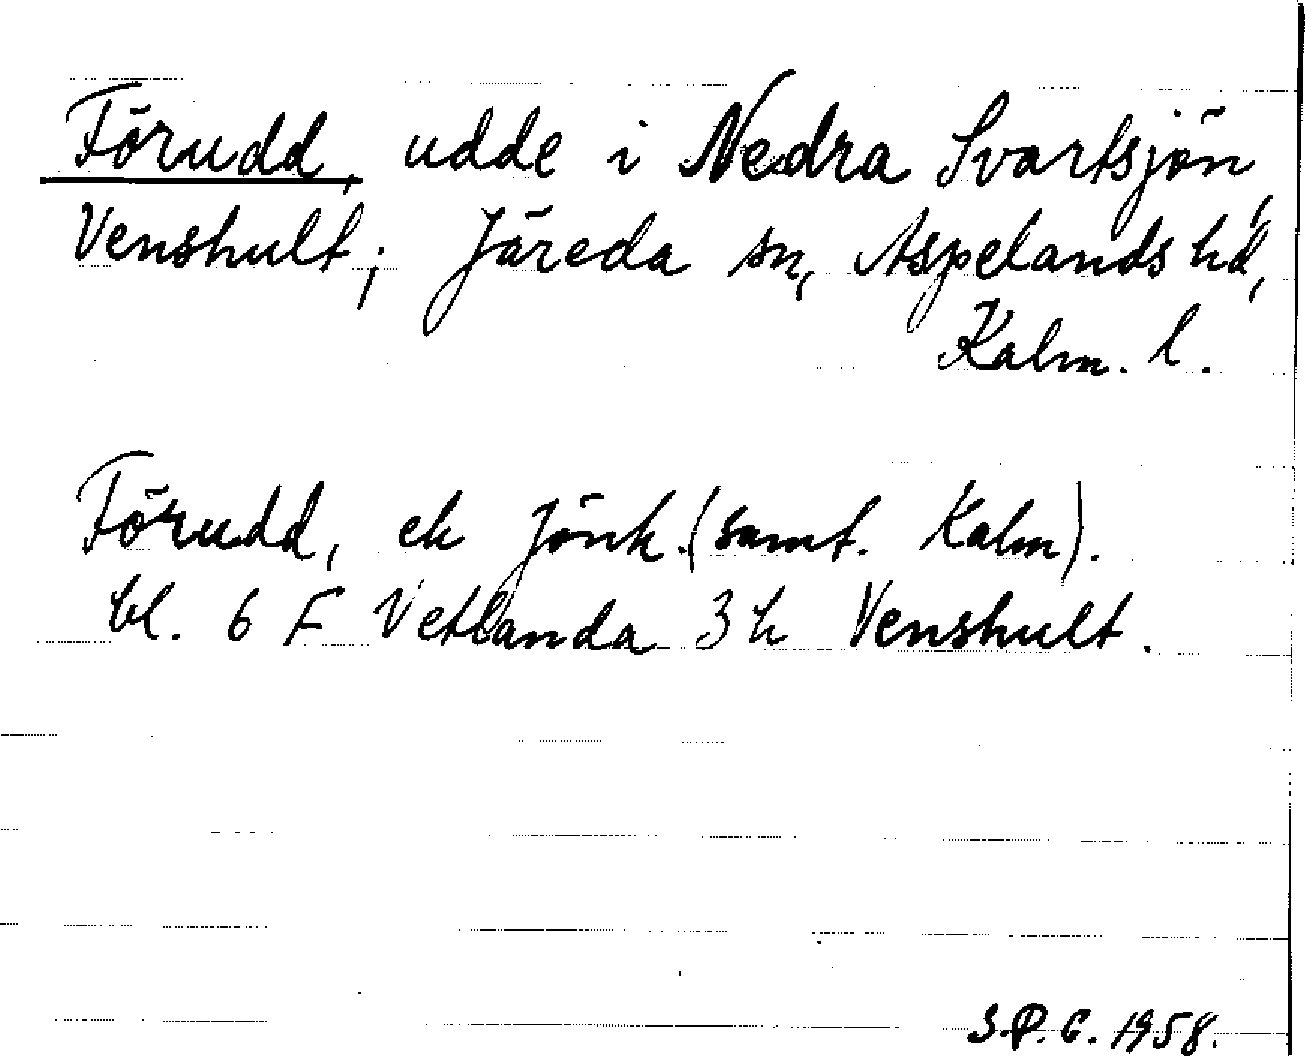 Förudd, udde i Nedra Svartsjön,
Venshult; Järeda sn, Aspelands hd,
Kalm. l.
Förudd, ek Jönk. (samt. Kalm).
bl. 6 F Vetlanda 3 h Venshult.
S.P.G. 1958.